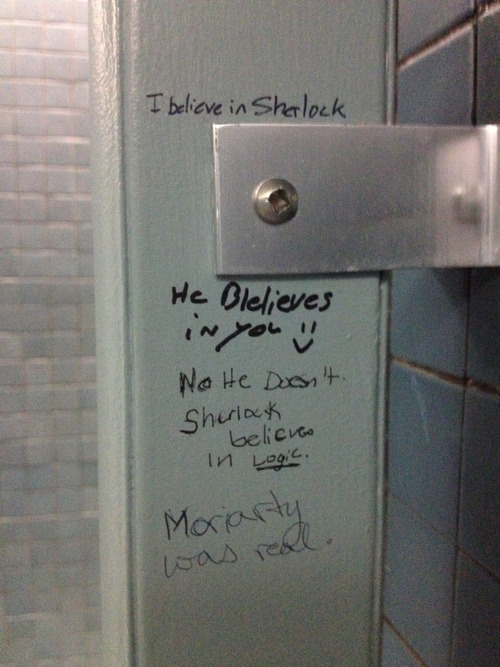 I believe in Sherlock
He Blelieves
in you !!
No He Doesn't.
Sherlock
believes
in Logic.
Moriarty
was real.